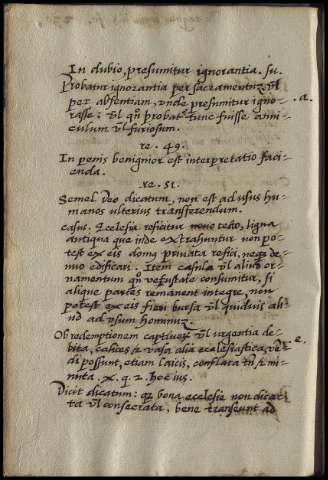 In dubio, presumitur ignorantia. su.
Probatur ignorantia per sacramentũ, ul̃
per absentiam, unde presumitur igno-
rasse: ul̃ qñ probatʳ tunc fuisse . a.
culum ul̃ furiosum.
re. 49.
In penis benignior est interpretatio faci-
enda.
re. 51.
Semel Deo dicatum, non est ad usus hu-
manos ulterius transferendum.
casus. Ecclesia reficitur novo tecto, ligna
antiqua que inde extrahuntur non po-
test ex eis domq̃ privata refici, neq̃ de
novo edificari. Item casula ul̃ aliud or-
namentum qñ vetustate consumitur, si
alique partes remanent integre, non
potest ex eis fieri bursa ul̃ quidvis ali-
ud ad usum hominuz.
Ob redemptionem captivoꝝ ul̃ urgentia de-
bita, calices & vasa alia ecclesiastica, ve- e.
di possunt, etiam laicis, conflata tñ &
nuta. x. q. 2. hoc ius.
Dicit dicatum: qz bona ecclesie non dica-
ta ul̃ consecrata, bene transeunt ad